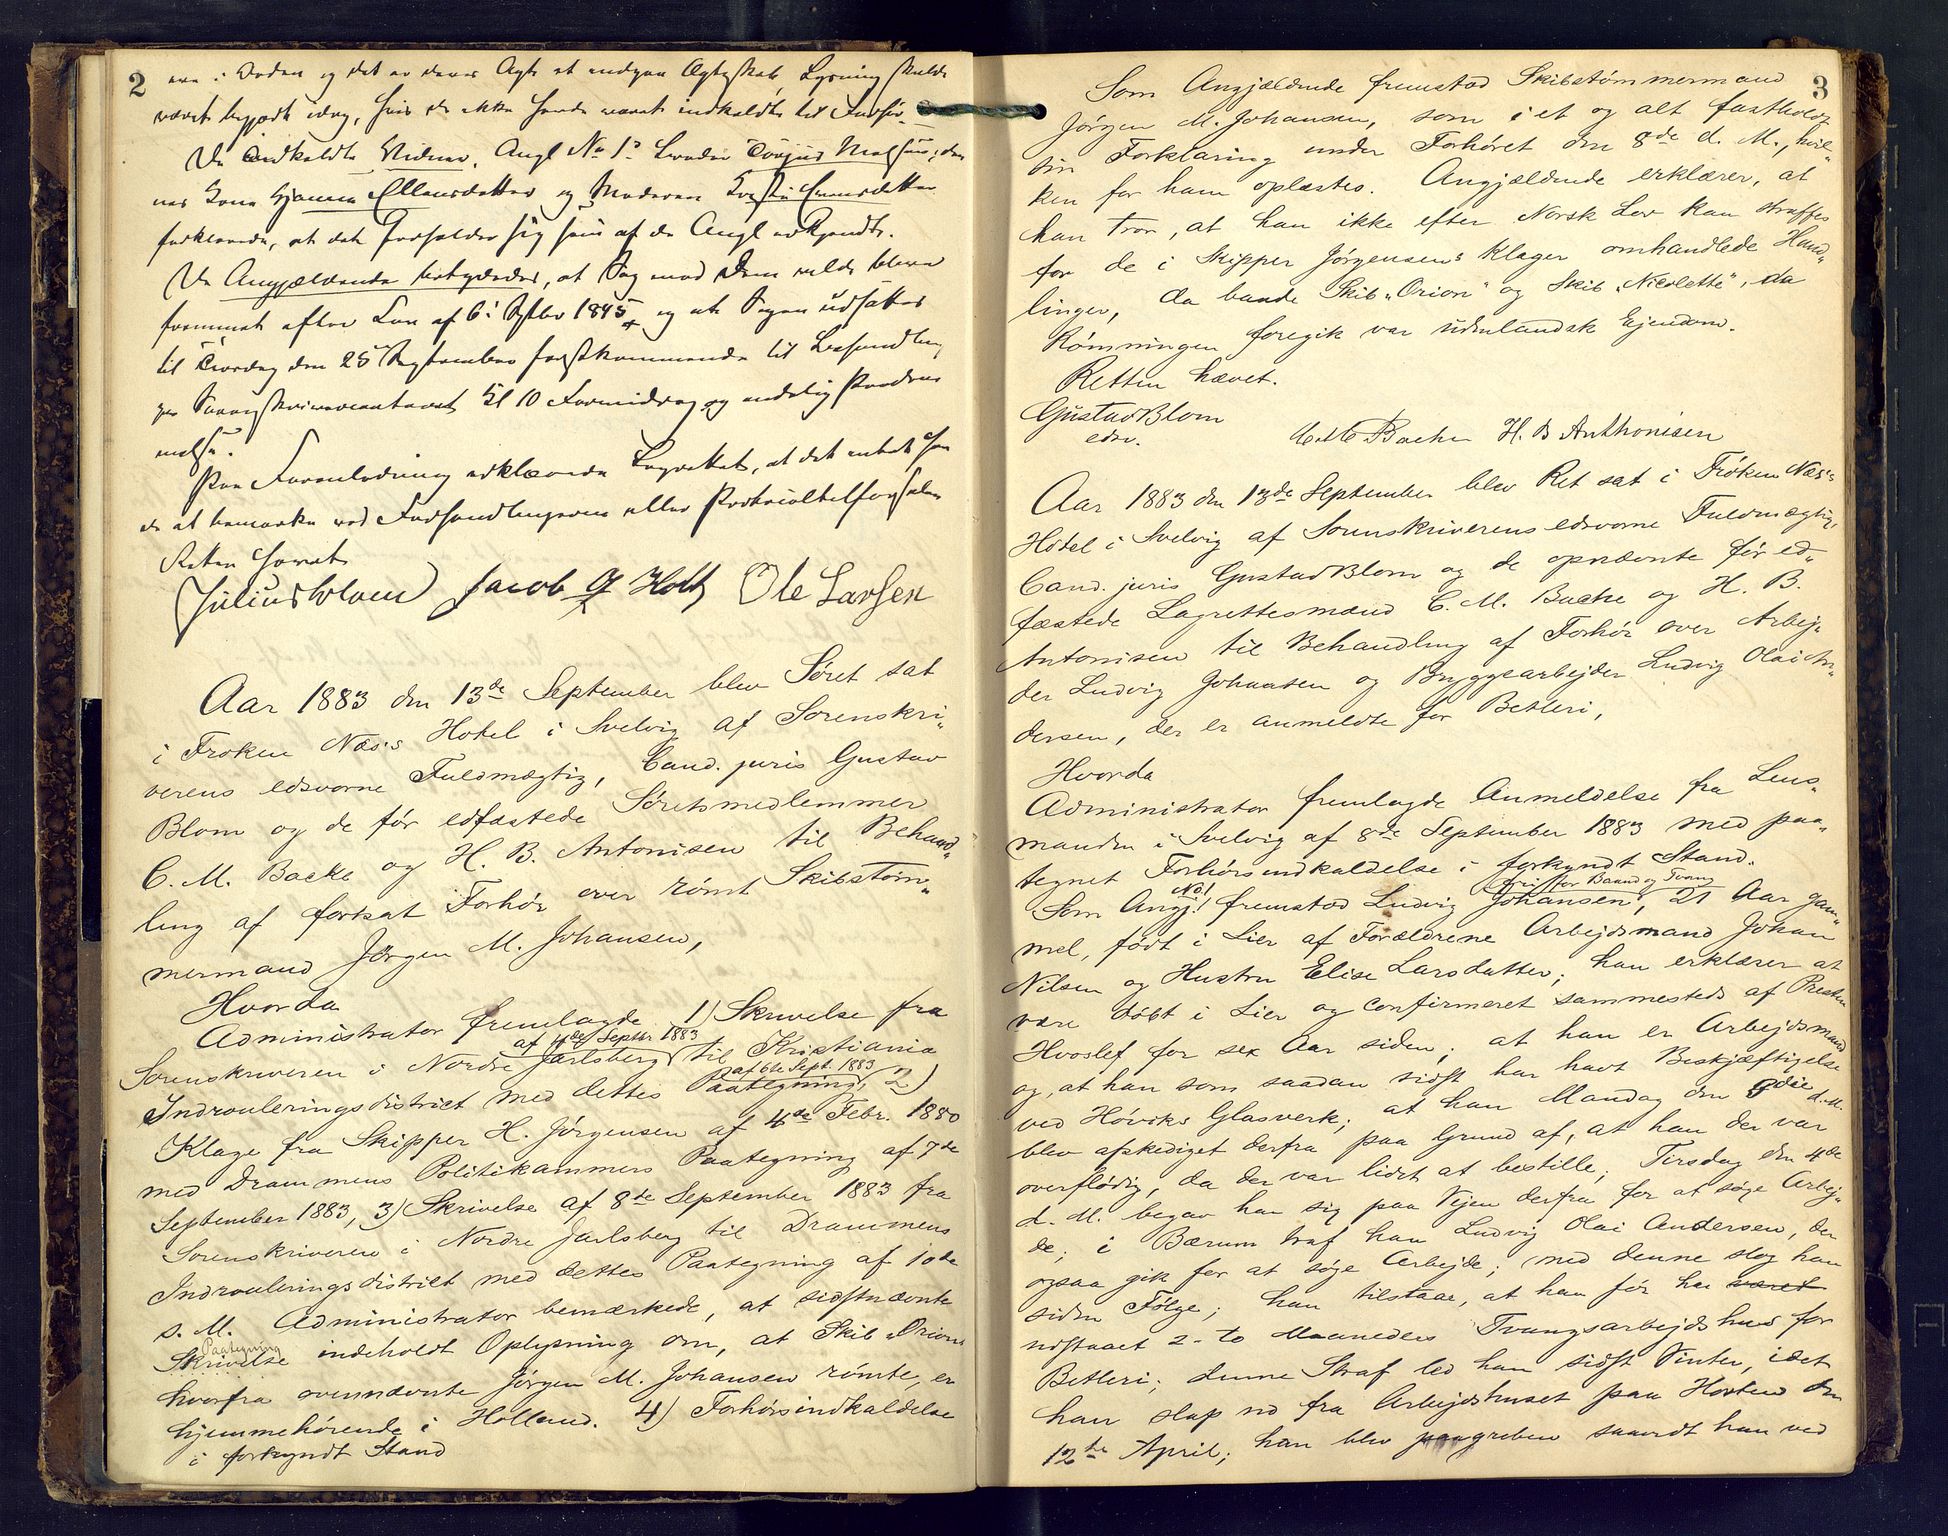 2
ere i Baaden og det er deres Agt at indgaa Ægteskab, Lysning skulde
været begjært idag, hvis de ikke havde været indkaldte til Forhør.
De Indkaldte Vidner, Angl No 1s Broder
Kone Gjanna Ellensdatter og Moderen
forklarede, at det forholder sig som af de Angl erkjendt.
De Angjældende betydedes, at Sag mod Dem vilde blive
fremmet efter Lov af 6te Septbr 1845 og at Sagen udsættes
til Tirsdag den 25 September førstkommende til Behandling
paa Sorenskriverkontoret Kl 10 Formiddag og endelig Paadøm
melse.
Paa Foranledning erklærede Lagrettet, at det intet hav
de at bemærke ved Forhandlingerne eller Protokoltilførselen
Retten hævet
Julius Jacob G Holt Ole Larsen
Aar 1883 den 13de September blev Søret sat
i Frøken Næs's Hotel i Svelvig af Sorenskri„
verens edsvorne Fuldmægtig, Cand. juris Gustav
Blom og de før edfæstede Søretsmedlemmer
C. M. Backe og H. B. Antonisen til Behand„
ling af fortsat Forhør over rømt Skibstøm„
mermand Jørgen M. Johansen,
Hvorda
Administrator fremlagde 1) Skrivelse fra
af 4de Septbr. 1883
Sorenskriveren i Nordre Jarlsberg til Kristiania
af 6te Sept. 1883
Indrouleringsdistrict med dettes Paategning, 2)
Klage fra Skipper H. Jørgensen af 4de Febr. 1880
med Drammens Politikammers Paategning af 7de
September 1883, 3) Skrivelse af 8de September 1883 fra
Sorenskriveren i Nordre Jarlsberg til Drammens
Indrouleringsdistrict med dettes Paategning af 10de
s. M. Administrator bemærkede, at sidstnævnte
Paategning
Skrivelse indeholdt Oplysning om, at Skib „Orion„
hvorfra ovennævnte Jørgen M. Johansen rømte, er
hjemmehørende i Holland. 4) Forhørsindkaldelse
i forkyndt Stand
3
Som Angjældende fremstod Skibstømmermand
Jørgen M. Johansen, som i et og alt fastholdt
sin Forklaring under Forhøret den 8de d. M., hvil„
ken for ham oplæstes. Angjældende erklærer, at
han tror, at han ikke efter Norsk Lov kan straffes
for de i Skipper Jørgensens Klager omhandlede Hand„
linger, da baade Skib „Orion“ og Skib „Nicolette“, da
Rømningen foregik var udenlandsk Ejendom.
Retten hævet.
Gustav Blom
edsv.
Backe H. B Anthonisen
Aar 1883 den 13de September blev Ret sat i Frøken Næs's
Hotel i Svelvig af Sorenskriverens edsvorne Fuldmægtig,
Cand. juris Gustav Blom og de opnævnte før ed„
fæstede Lagrettesmænd C. M. Backe og H. B.
Antonisen til Behandling af Forhør over Arbej„
der Ludvig Johansen og Bryggearbejder Ludvig Olai An„
dersen, der er anmeldte for Betleri,
Hvorda
Administrator fremlagde Anmeldelse fra Lens„
manden i Svelvig af 8de September 1883 med paa„
tegnet Forhørsindkaldelse i forkyndt Stand.
No 1 fri for Baand og Tvang
Som Angj. fremstod Ludvig Johansen, 21 Aar gam„
mel, født i Lier af Forældrene Arbejdsmand Johan
Nilsen og Hustru Elise Larsdatter; han erklærer at
være døbt i Lier og confirmeret sammesteds af Presten
Hvoslef for sex Aar siden; at han er Arbejdsmand
og, at han som saadan sidst har havt Beskjæftigelse
ved Høviks Glasverk; at han Mandag den 3die d. M.
blev afskediget derfra paa Grund af, at han der var
overflødig, da der var lidet at bestille; Tirsdag den 4de
d. M. begav han sig paa Vejen derfra for at søge Arbej„
de; i Bærum traf han Ludvig Olai Andersen, der
ogsaa gik for at søge Arbejde; med denne slog han
siden Følge; han tilstaar, at han før har været
udstaaet 2-to Maaneders Tvangsarbejdshus for
Betleri; denne Straf led han sidst Vinter, idet
han slap ud fra Arbejdshuset paa Horten den
12te April; han blev paagreben saavidt han ved